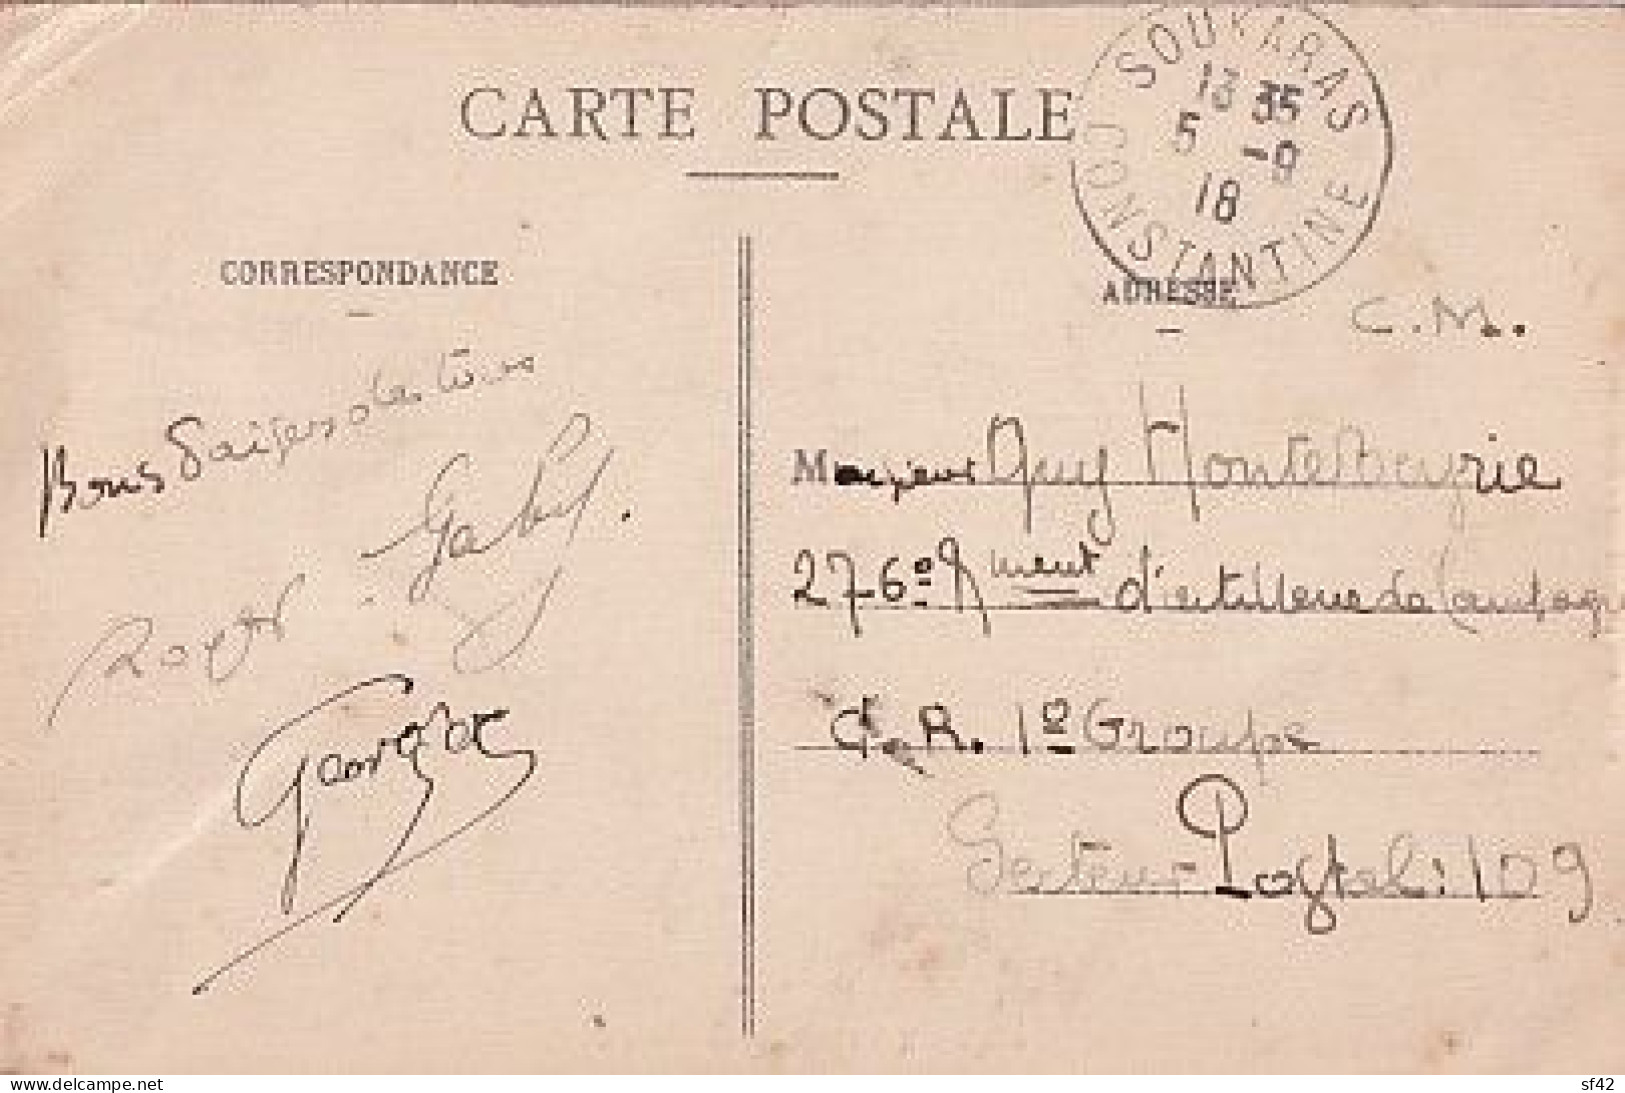 CARTE POSTALE
SOUK ARAS
13 35
5 -9
18
CONSTANTINE
CORRESPONDANCE
ADRESSE
C.M.
Bons Baisers de tous
Roger - Gaby.
Georges
Monsieur Guy Montelbeyrie
276e Rment d'artillerie de Campagne
A. R. 1e Groupe
Secteur Postal: 109
delcampe.net
sf42